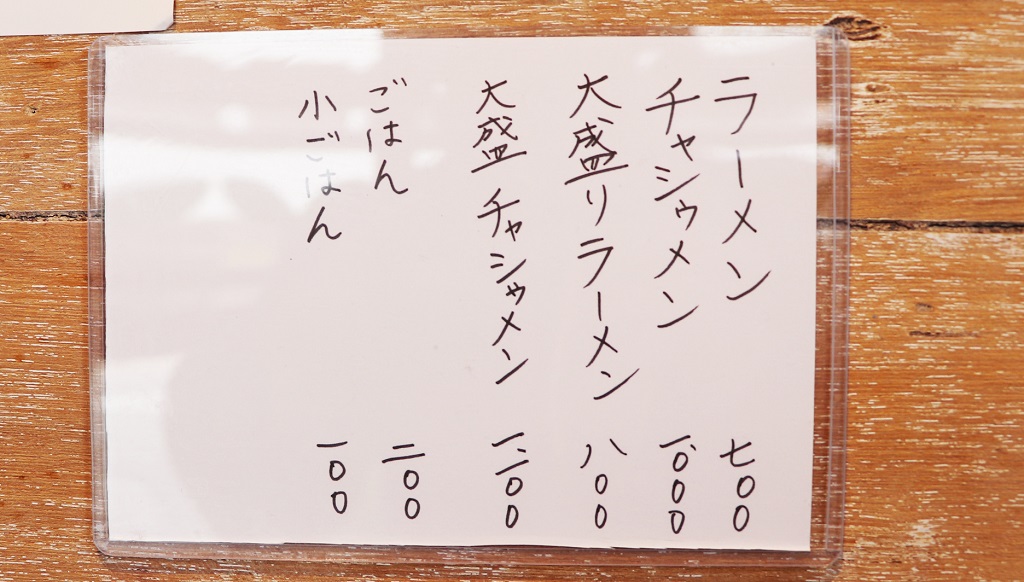 ラーメン 七〇〇
チャシウメン 一、〇〇〇
大盛りラーメン 八〇〇
大盛チャシウメン 一、一〇〇
ごはん 二〇〇
小ごはん 一〇〇